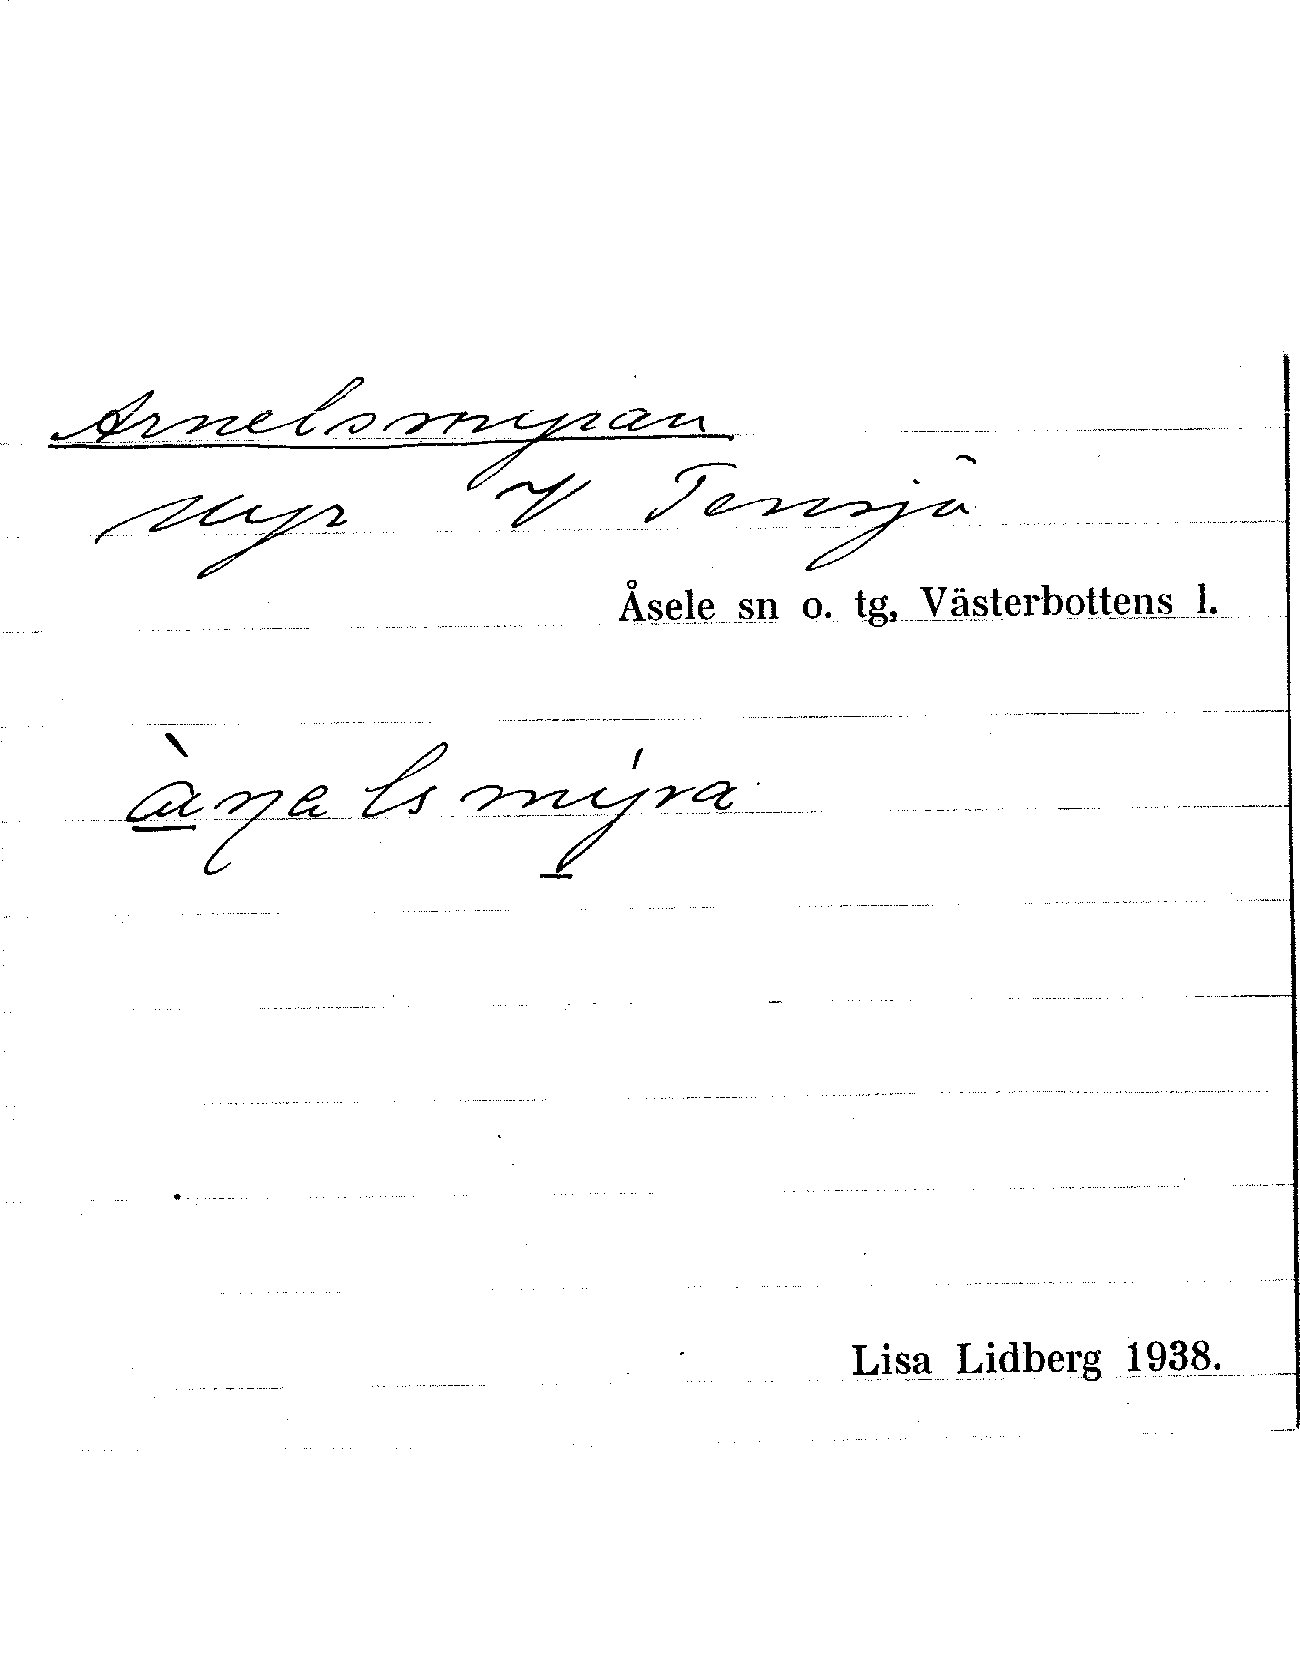 Arnelsmyran
Myr V Tensjö
Åsele sn o. tg, Västerbottens l.
Lisa Lidberg 1938.